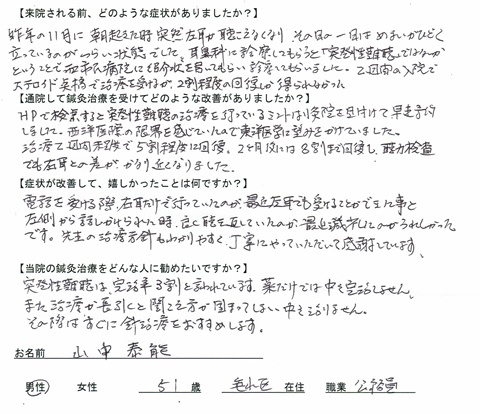 【来院される前、どのような症状がありましたか？】
昨年の11月に朝起きた時突然左耳が聴こえなくなり その日の一日はめまいがひどく
立っているのがつらい状態でして、耳鼻科に診察してもらうと「突発性難聴」ではないか
ということで 病院にも紹介状を書いてもらい診療してもらいました。2週間の入院で
ステロイド点滴で治療を受けるが、2割程度の回復しか得られなかった
【通院して鍼灸治療を受けてどのような改善がありましたか？】
HPで検索すると突発性難聴の治療を行っているミントはり灸院を見付けて早速予約
しました。西洋医療の限界を感じていたので東洋医学に望みをかけていました。
治療で2週間程度で5割程度に回復。2ヶ月後には8割まで回復し、聴力検査
でも右耳との差がかなり近くなりました。
【症状が改善して、嬉しかったことは何ですか？】
電話を受ける際、右耳だけで行っていたのが、最近左耳でも受けることができた事と
左側から話しかけられた時、良く聴き直していたのが、最近減少したのがうれしかった
です。先生の治療方針もわかりやすく、丁寧にやっていただいて感謝しています。
【当院の鍼灸治療をどんな人に勧めたいですか？】
突発性難聴は、完治率3割と言われています。薬だけでは中々完治しません。
また治療が長引くと聞こえ方が固まってしまい中々治りません。
その際はすぐに針治療をおすすめします。
お名前 山中泰能
男性 女性 51歳 在住 職業 公務員